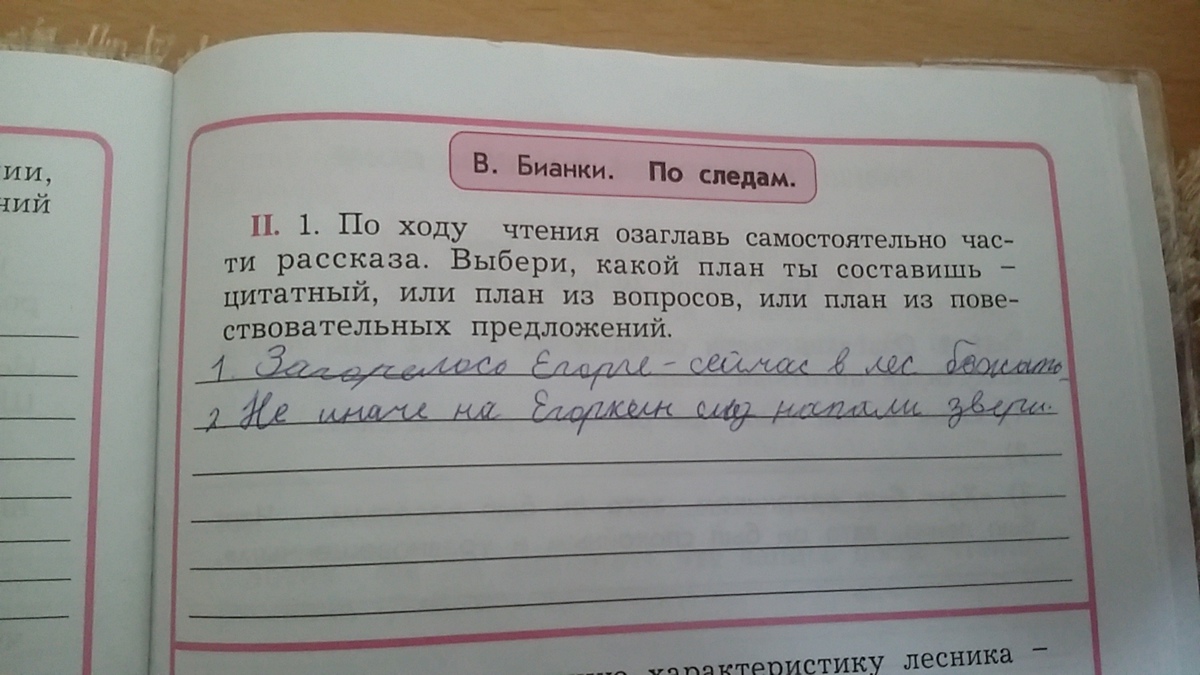 ии,
ний
В. Бианки. По следам.
II. 1. По ходу чтения озаглавь самостоятельно час-
ти рассказа. Выбери, какой план ты составишь –
цитатный, или план из вопросов, или план из пове-
ствовательных предложений.
1. Загорелось Егорке - сейчас в лес бежать.
2 Не иначе на Егоркин след напали звери.
характеристику лесника –